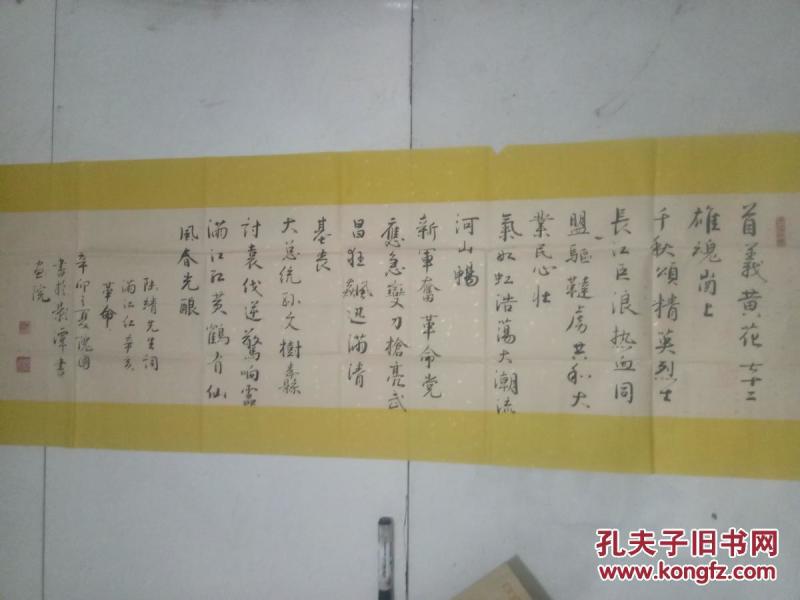 首義黄花七十二
雄魂崗上
千秋頌精英烈士
長江巨浪热血同
盟驅韃虜共和大
業民心壮
氣如虹浩蕩大潮流
河山暢
新軍奮革命党
應急變刀槍亮武
昌狂飆迅滿清
基丧
大总统孙文樹
討袁伐逆驚响雷
滿江红黄鶴有仙
風春光釀
陆靖先生词
滿江红辛亥
革命
辛卯之夏
書於紫霄書
画院
孔夫子旧书网
www.kongfz.com